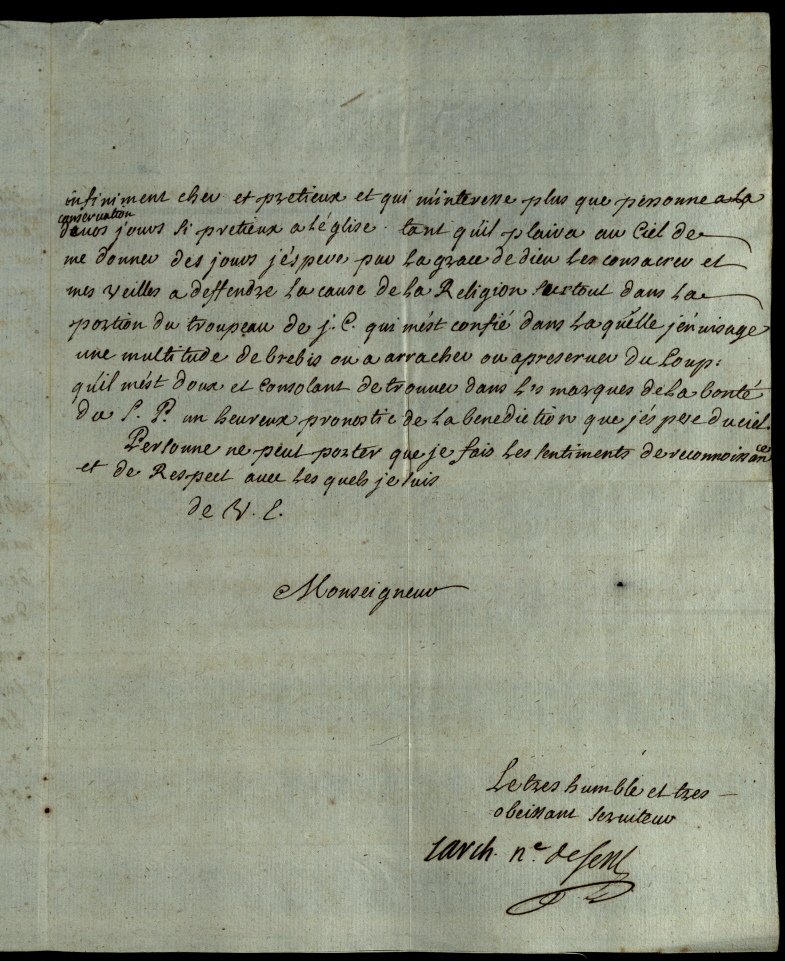 infiniment cher et pretieux et qui m'interesse plus que personne a la
conservation
de vos jours si pretieux a l'église. tant qu'il plaira au Ciel de
me donner des jours j'éspere par la grace de dieu les consacrer et
mes veilles a deffendre la cause de la Religion surtout dans la
portion du troupeau de j. C. qui m'est confié dans la quélle j'envisage
une multitude de brebis ou a arracher ou a preserver du Loup:
qu'il m'ést doux et consolant de trouver dans les marques de la bonté
du S. P. un heureux pronostic de la benediction que j'éspere du ciel.
Personne ne peut porter que je fais les sentiments de reconnoissance
et de Respect avec les quels je suis
de V. E.
Monseigneur
Le tres humble et tres
obeissant serviteur
l'arch. n. de